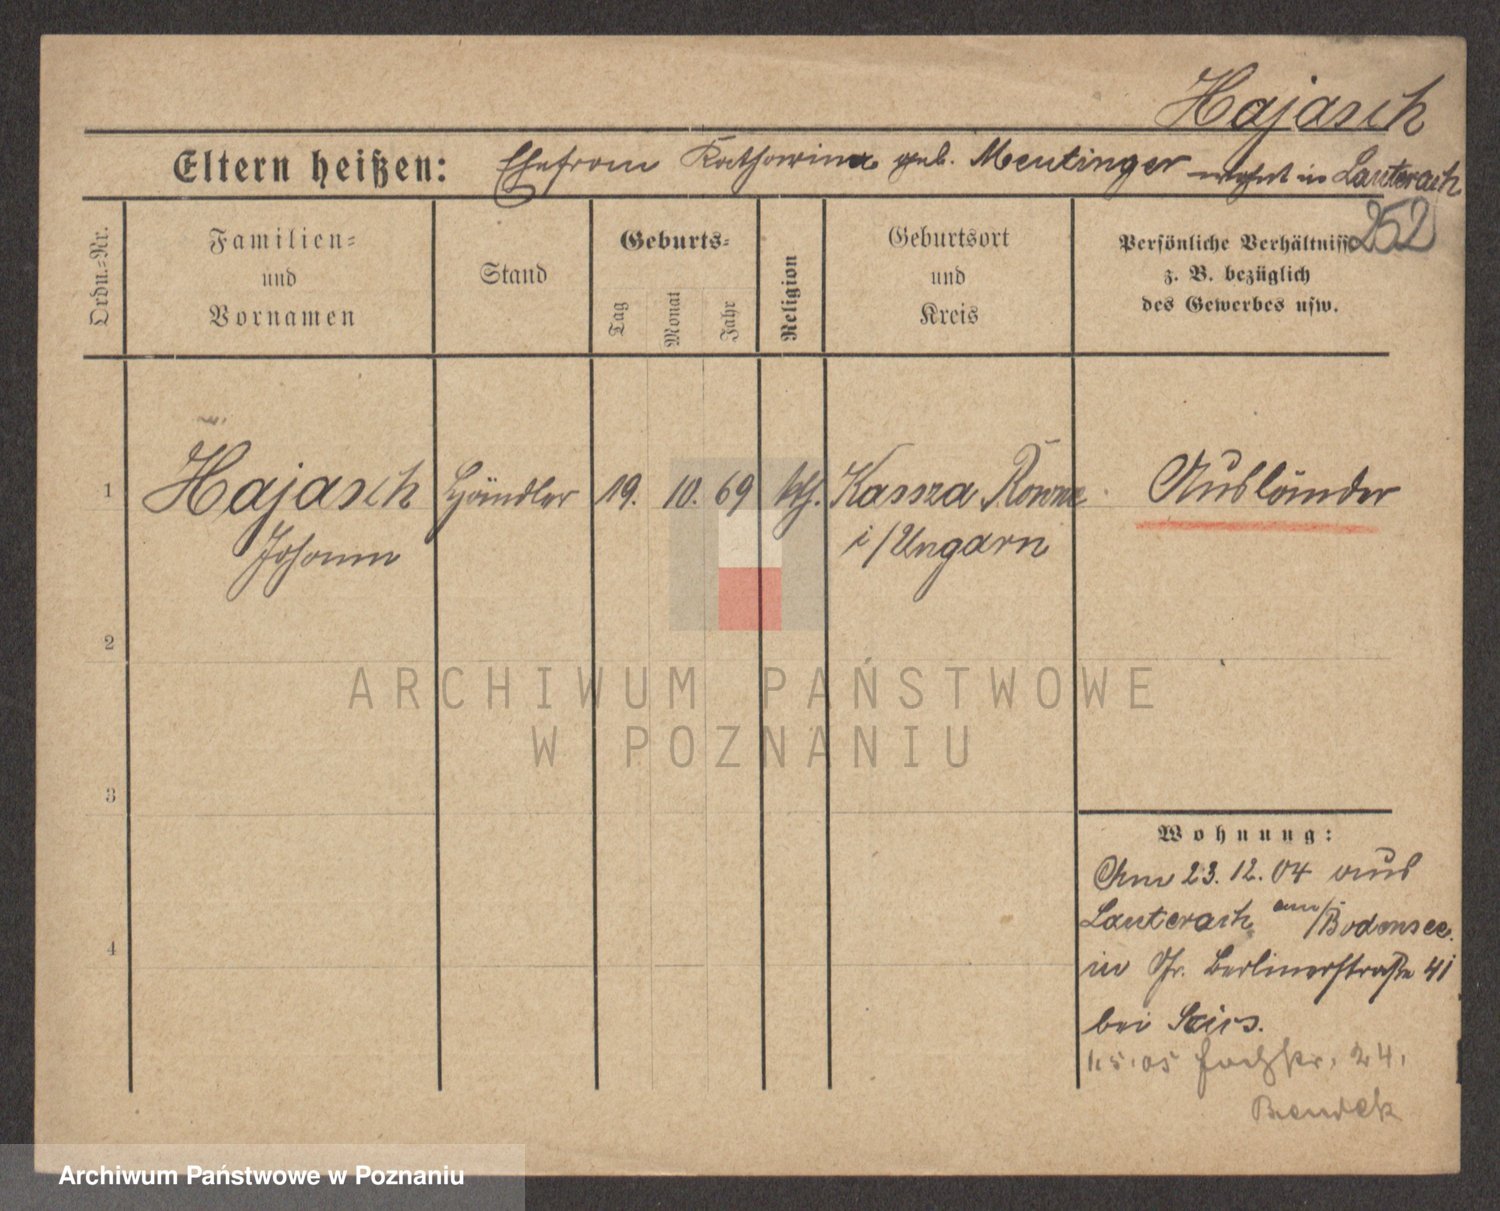 Hajasch
Eltern heißen: Ehefrau Katharina geb. Meutinger wohnt in Lauterach
252
Ordn.-Nr.
Familien-
und
Vornamen
Stand
Geburts-
Tag
Monat
Jahr
Religion
Geburtsort
und
Kreis
Persönliche Verhältnisse
z. B. bezüglich
des Gewerbes usw.
1 Hajasch Händler 19. 10. 69 kth. Kassza Ausländer
Johann i/Ungarn
2
3
4
Wohnung:
Am 23.12.04 aus
Lauterach am/Bodensee
in Berlinerstraße 41
bei
1.5.05 24.
ARCHIWUM PAŃSTWOWE
W POZNANIU
Archiwum Państwowe w Poznaniu